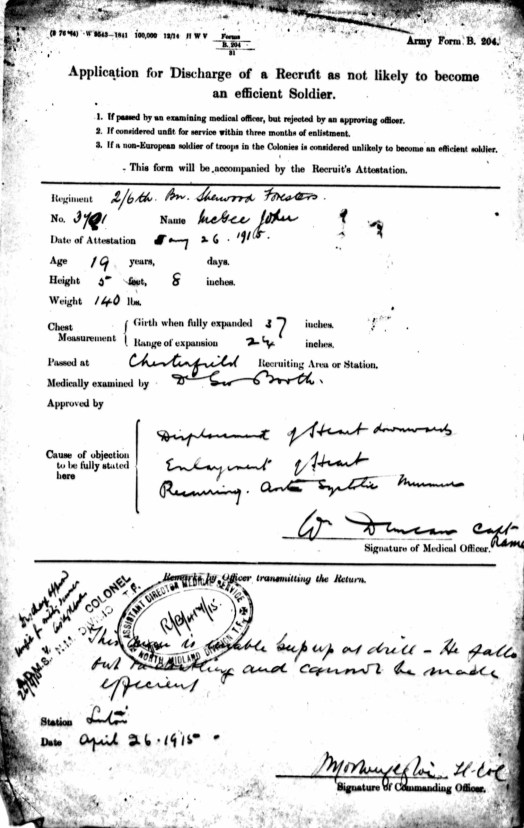 Forms
B. 204
21
Army Form B. 204.
Application for Discharge of a Recruit as not likely to become
an efficient Soldier.
1. If passed by an examining medical officer, but rejected by an approving officer.
2. If considered unfit for service within three months of enlistment.
3. If a non-European soldier of troops in the Colonies is considered unlikely to become an efficient soldier.
This form will be accompanied by the Recruit's Attestation.
Regiment 2/6th Bn. Sherwood Foresters
No. Name McGee John
Date of Attestation 26. 1915.
Age 19 years, days.
Height 5 feet, 8 inches.
Weight 140 lbs.
Chest Measurement
Girth when fully expanded 37 inches.
Range of expansion 2¼ inches.
Passed at Chesterfield Recruiting Area or Station.
Medically examined by Dr Geo Booth.
Approved by
Cause of objection to be fully stated here
Displacement of Heart downwards
Enlargement of Heart
Recurring. Systolic
W Duncan Capt
Signature of Medical Officer.
Remarks by Officer transmitting the Return.
COLONEL
ASSISTANT DIRECTOR MEDICAL SERVICE
NORTH MIDLAND DIVISION T.F.
This man is keep up at drill – He falls
out and cannot be made
efficient
Station Luton
Date April 26. 1915.
Lt Col
Signature of Commanding Officer.